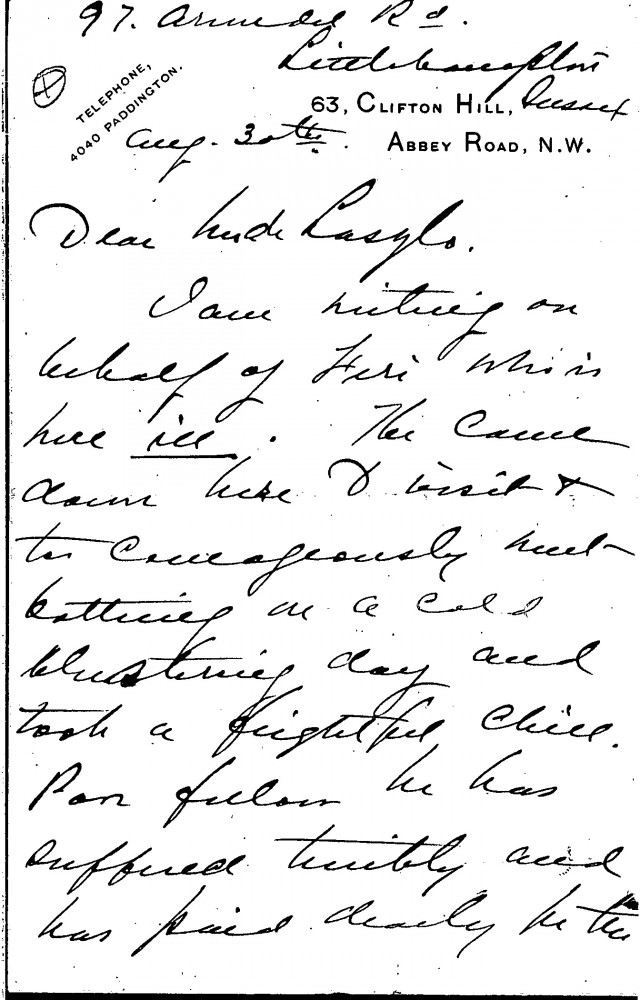 97. Arundel Rd.
Littlehampton
Sussex
TELEPHONE,
4040 PADDINGTON.
63, CLIFTON HILL,
ABBEY ROAD, N.W.
Aug. 30th.
Dear Laszlo.
I am writing on
behalf of Feri who is
here ill. He came
down here to visit &
too courageously went
bathing on a cold
blustering day and
took a frightful chill.
Poor fellow he has
suffered terribly and
has paid dearly for the